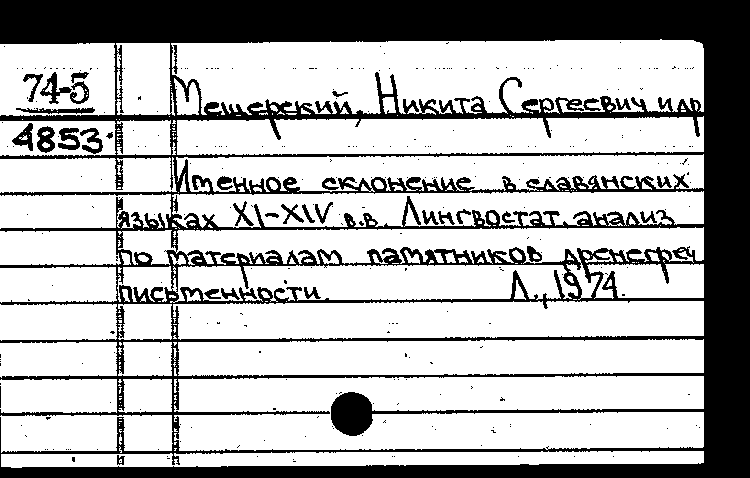 74-5
4853
Мещерский, Никита Сергеевич и др
Именное склонение в славянских
языках XI-XIV в.в. Лингвостат. анализ
по материалам памятников древнегреч
письменности. Л., 1974.